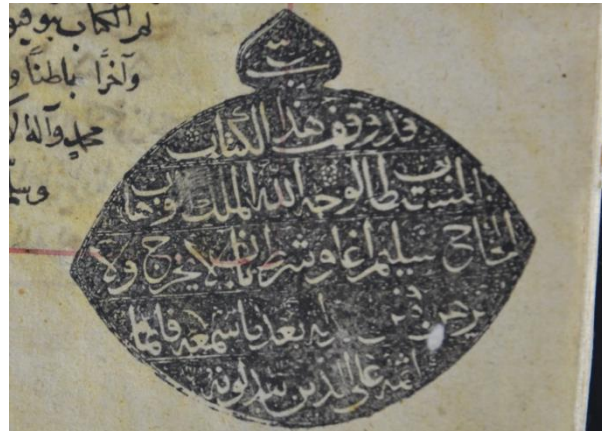 الكتاب بتوفيق
وآخرًا باطنًا و
محمد وآله
قد وقف هذا الكتاب
المستطاب لوجه الله الملك الوهاب
الحاج سليم اغا وشرط بان لا يخرج ولا
يرهن فمن بدله بعد ما سمعه فانما
اثمه على الذين يبدلونه